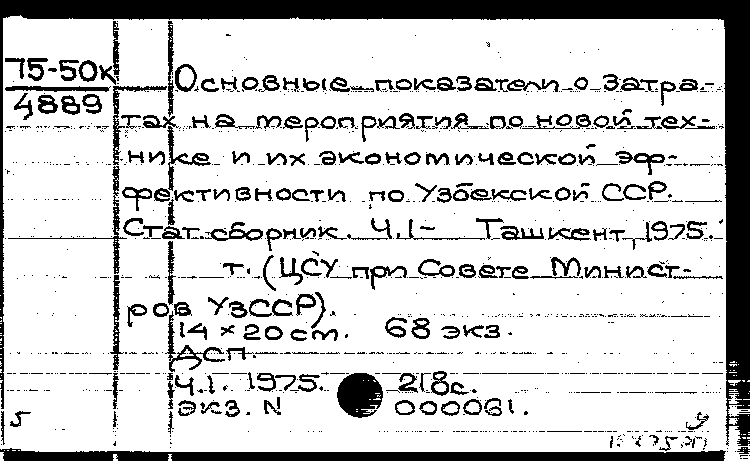 75-50к
4889
Основные показатели о затра-
тах на мероприятия по новой тех-
нике и их экономической эф-
фективности по Узбекской ССР.
Стат. сборник. Ч.1- Ташкент, 1975.
т. (ЦСУ при Совете Минист-
ров УзССР).
14 × 20 cm. 68 экз.
ДСП.
Ч.1. 1975. 218с.
экз. N 000061.
5
у